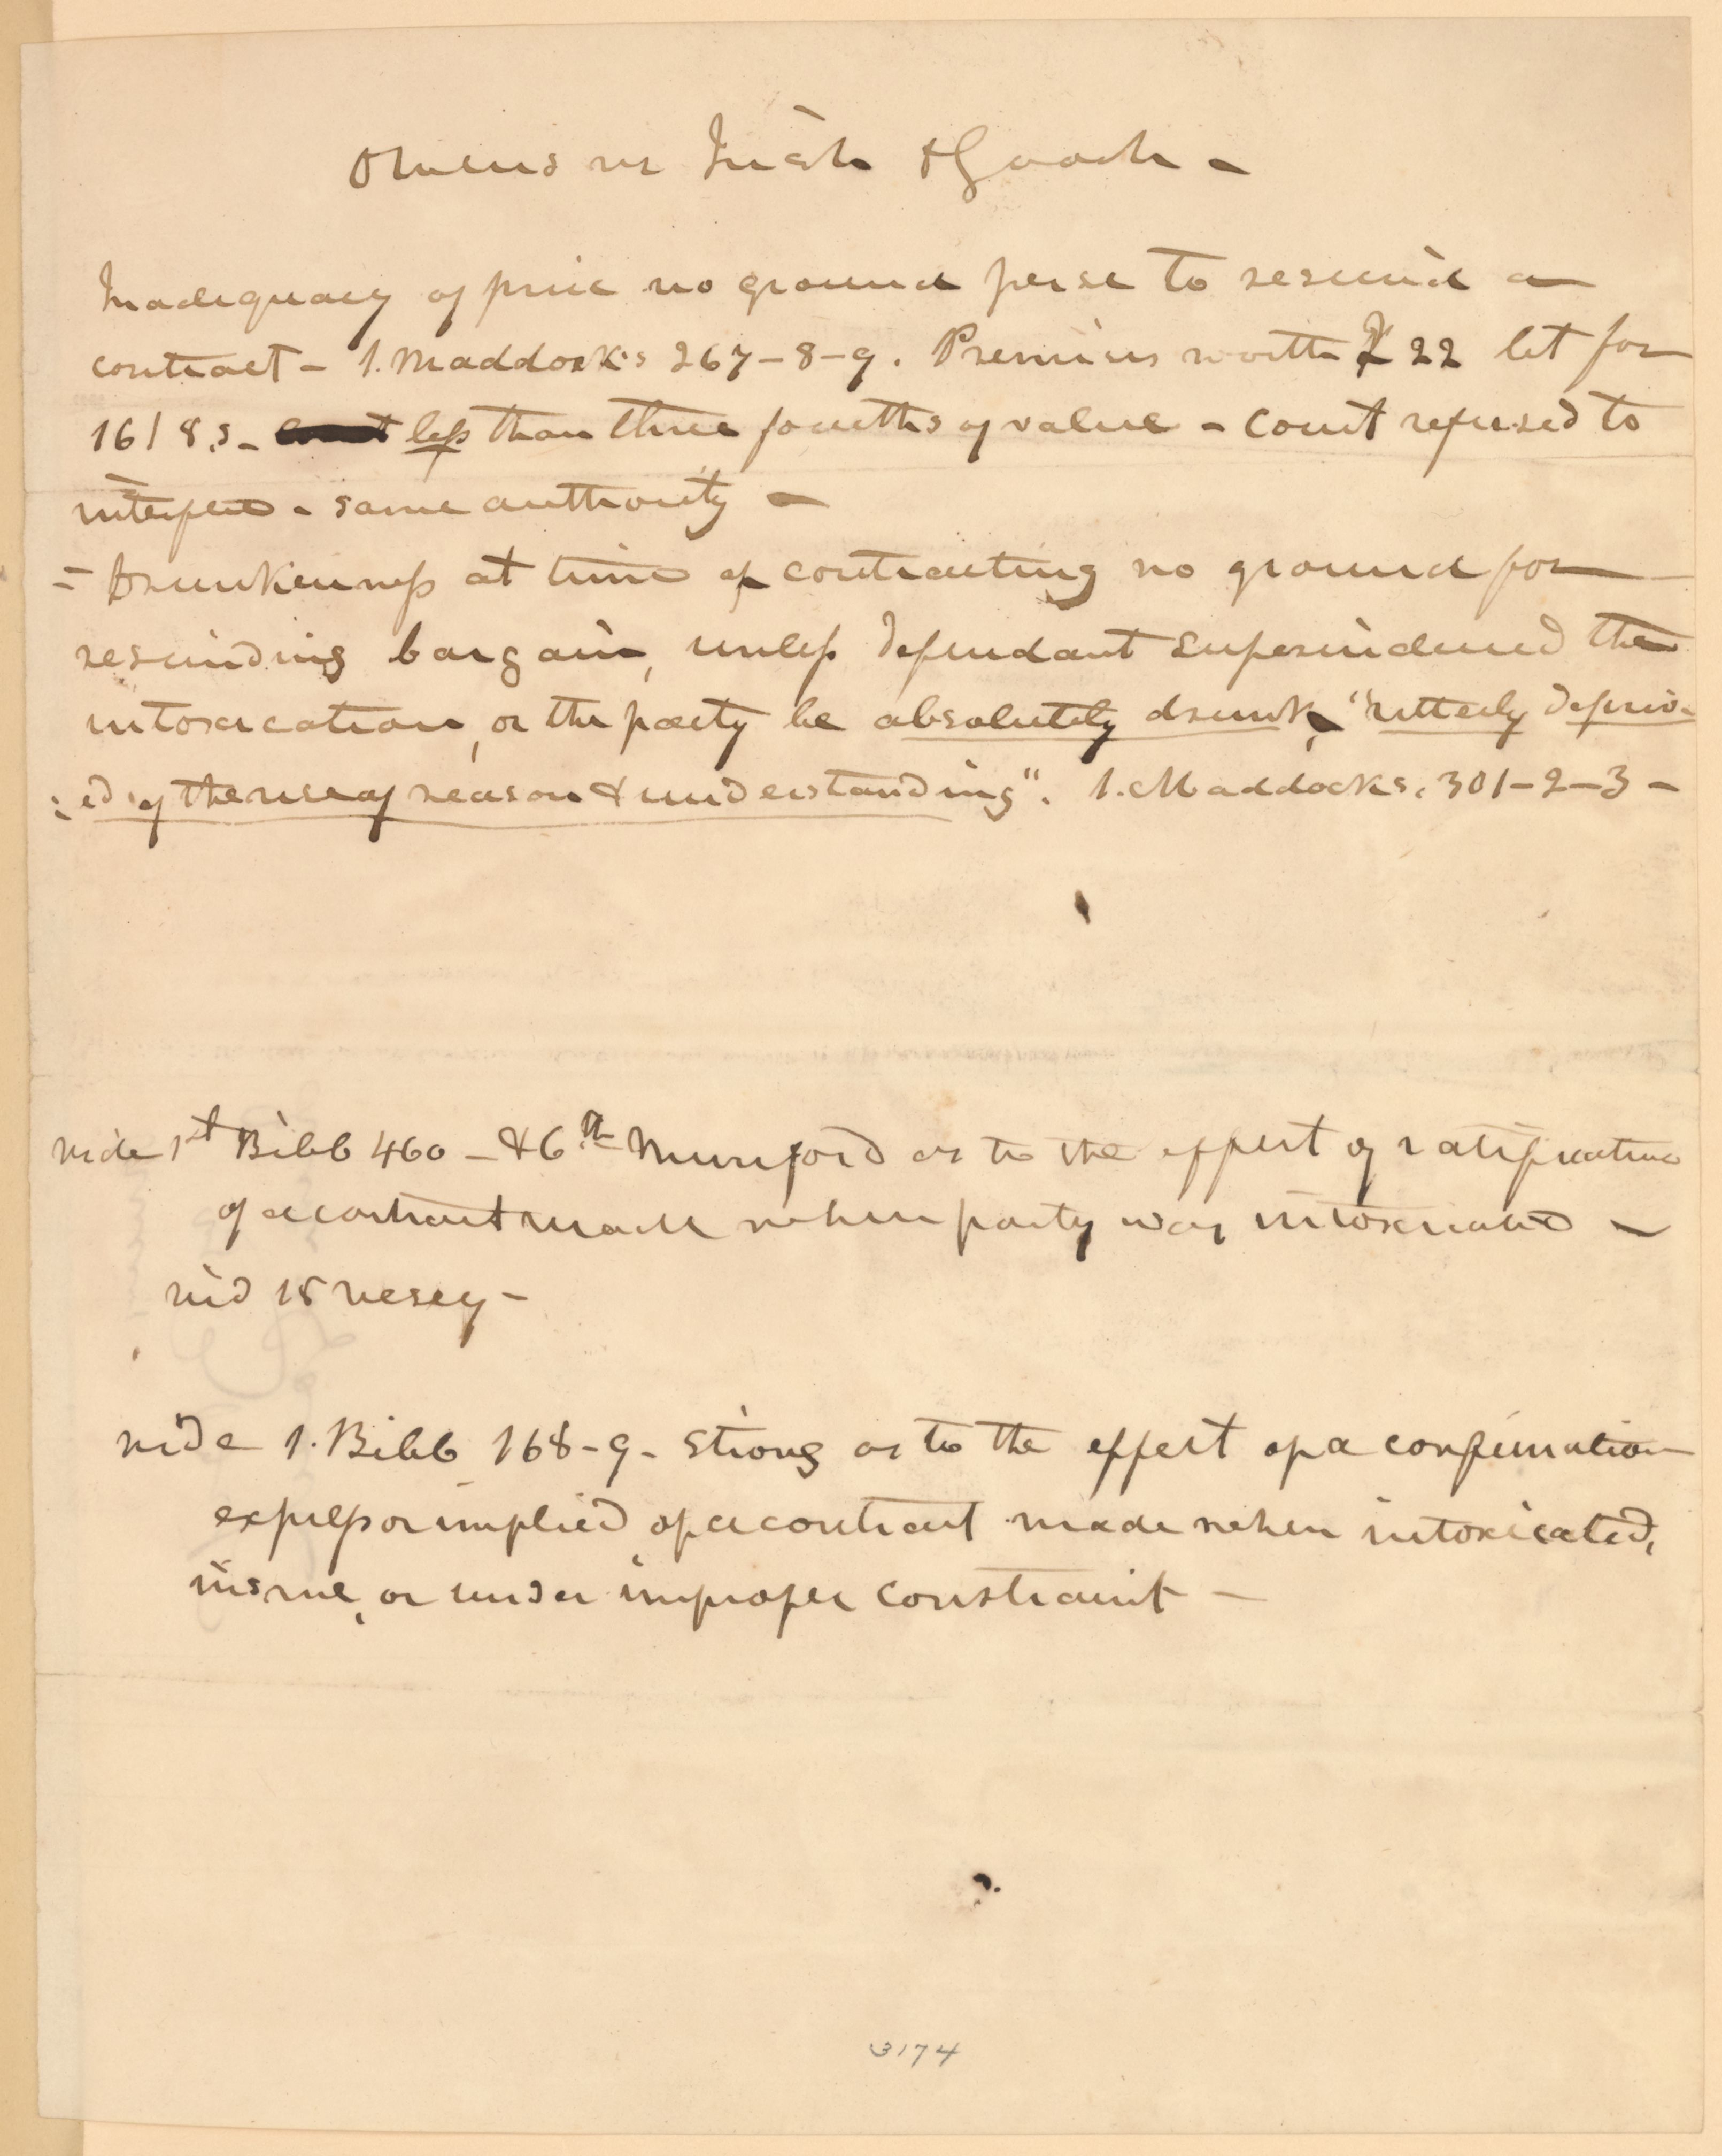 Owens vs Irish & Gooch -
Inadequacy of price no ground per se to rescind a
contract - 1. Maddock's 267-8-9. Premises worth £ 22 let for
16 l 8. s - less than three fourths of value - court refused to
interfere - same authority -
= Drunkenness at time of contracting no ground for
rescinding bargain, unless defendant superinduced the
intoxication, or the party be absolutely drunk, "utterly depriv-
:ed of the use of reason & understanding". 1. Maddocks. 301-2-3 -
vide 1st Bibb 460 - & 6th Munford as to the effect of ratification
of a contract made when party was intoxicated -
vid 18 Vesey -
vide 1. Bibb 168-9 - strong as to the effect of a confirmation
express or implied of a contract made when intoxicated,
insane, or under improper constraint -
3174